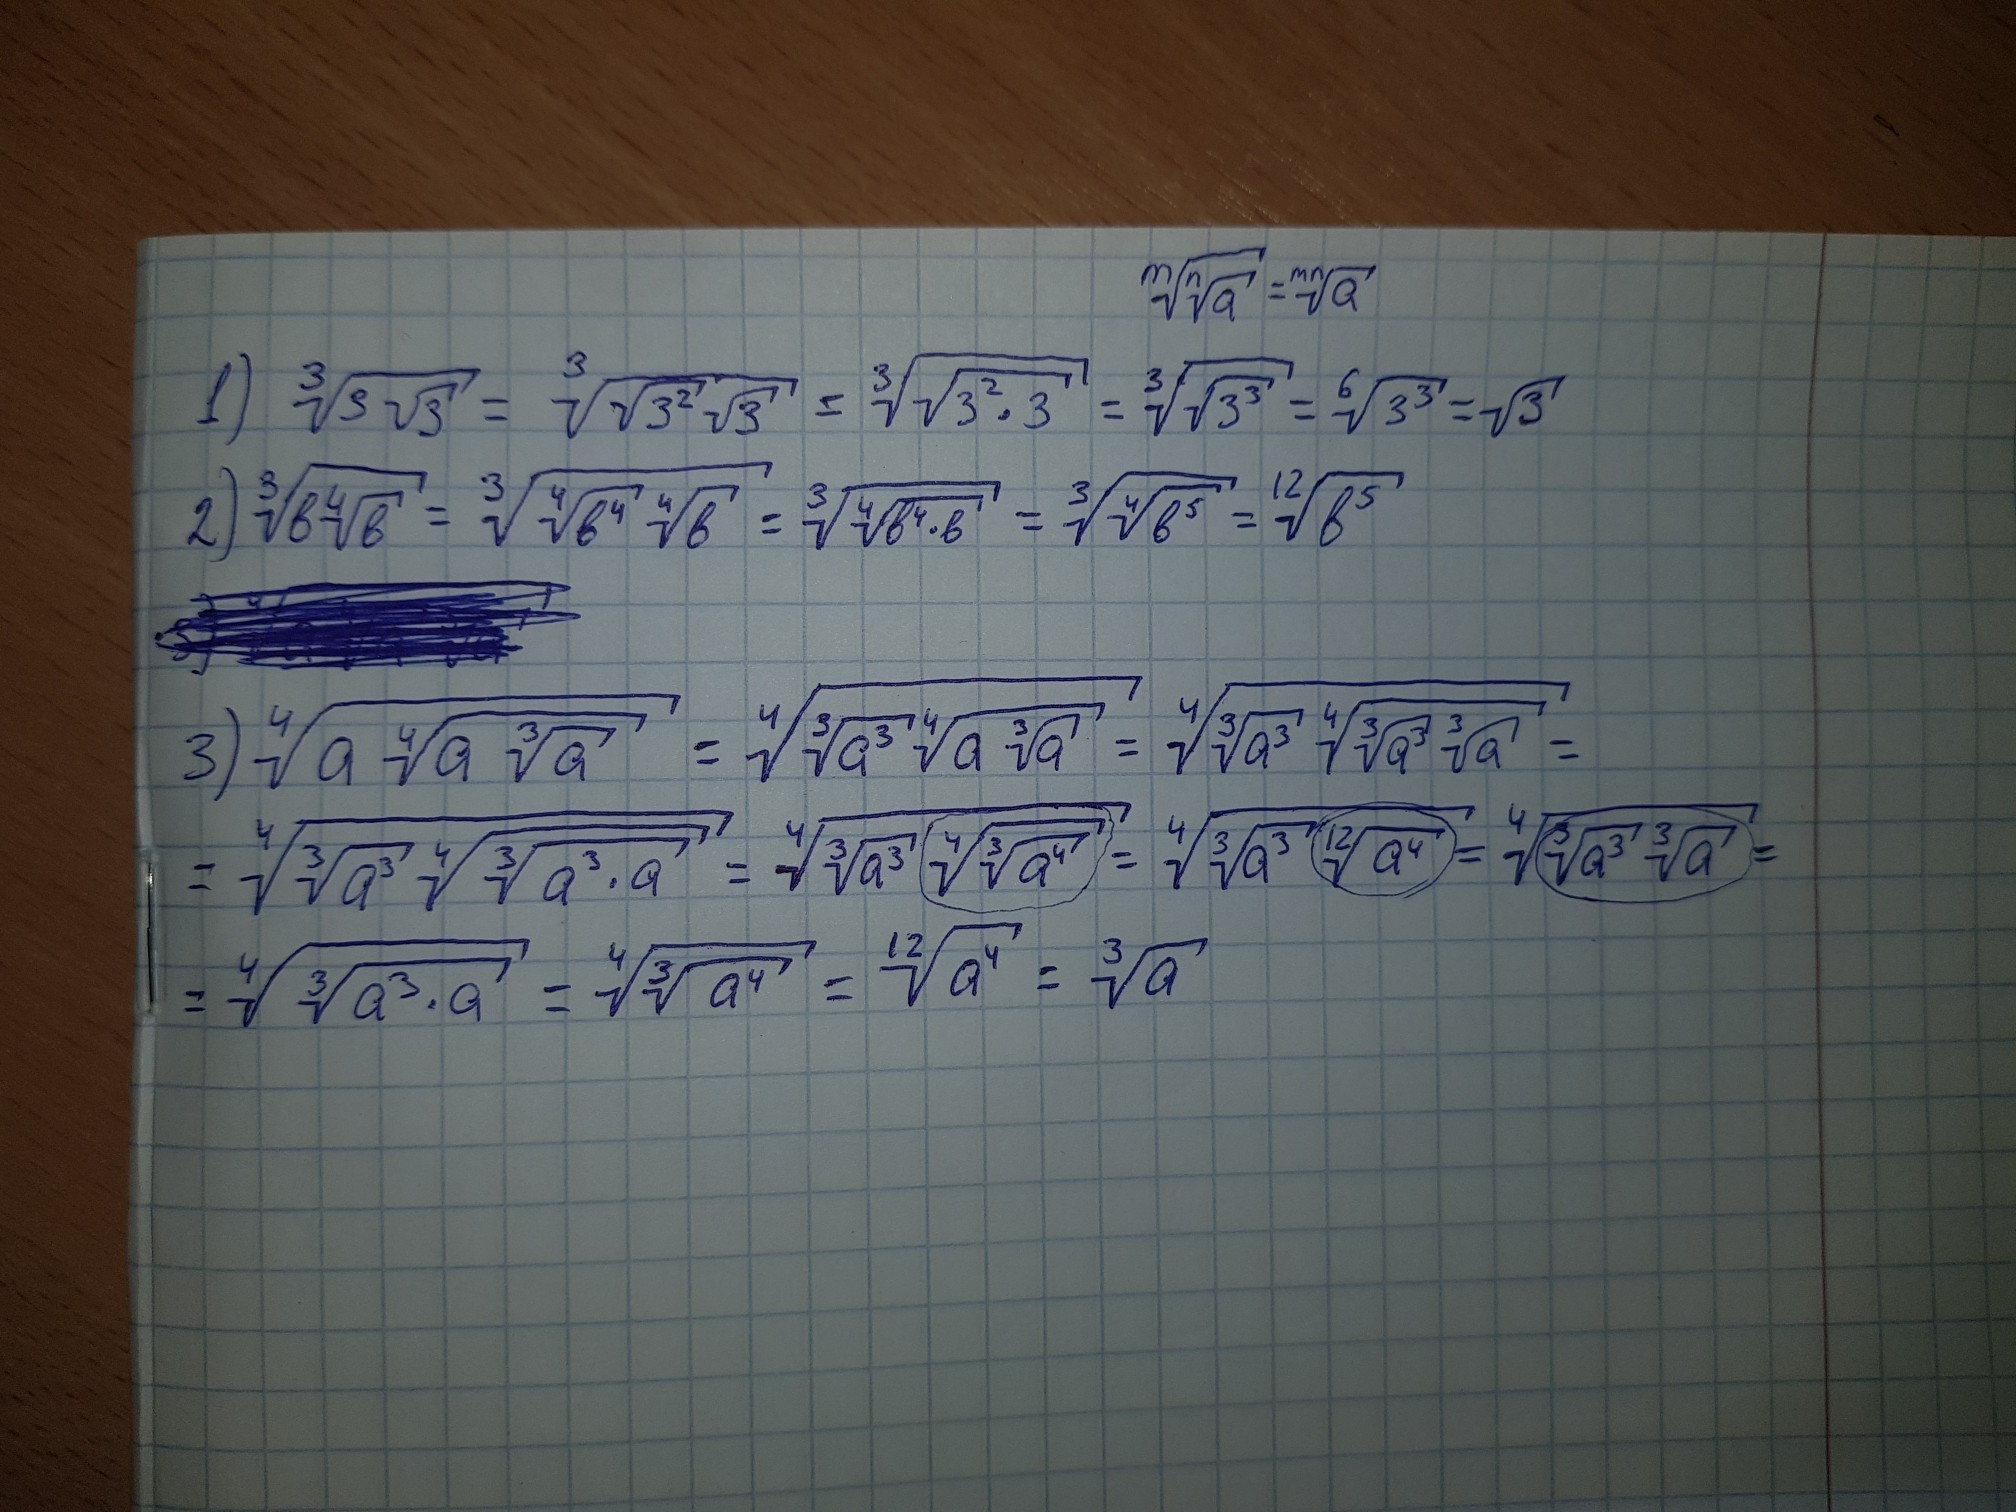 ᵐ√(ⁿ√a) = ᵐⁿ√a
1) ³√(3√3) = ³√(√3² √3) = ³√(√(3²·3)) = ³√(√3³) = ⁶√3³ = √3
2) ³√(в ⁴√в) = ³√(⁴√в⁴ ⁴√в) = ³√(⁴√(в⁴·в)) = ³√(⁴√в⁵) = ¹²√в⁵
3) ⁴√(a ⁴√(a ³√a)) = ⁴√(³√a³ ⁴√(a ³√a)) = ⁴√(³√a³ ⁴√(³√a³ ³√a)) =
= ⁴√(³√a³ ⁴√(³√(a³·a))) = ⁴√(³√a³ ⁴√(³√a⁴)) = ⁴√(³√a³ ¹²√a⁴) = ⁴√(³√a³ ³√a) =
= ⁴√(³√(a³·a)) = ⁴√(³√a⁴) = ¹²√a⁴ = ³√a